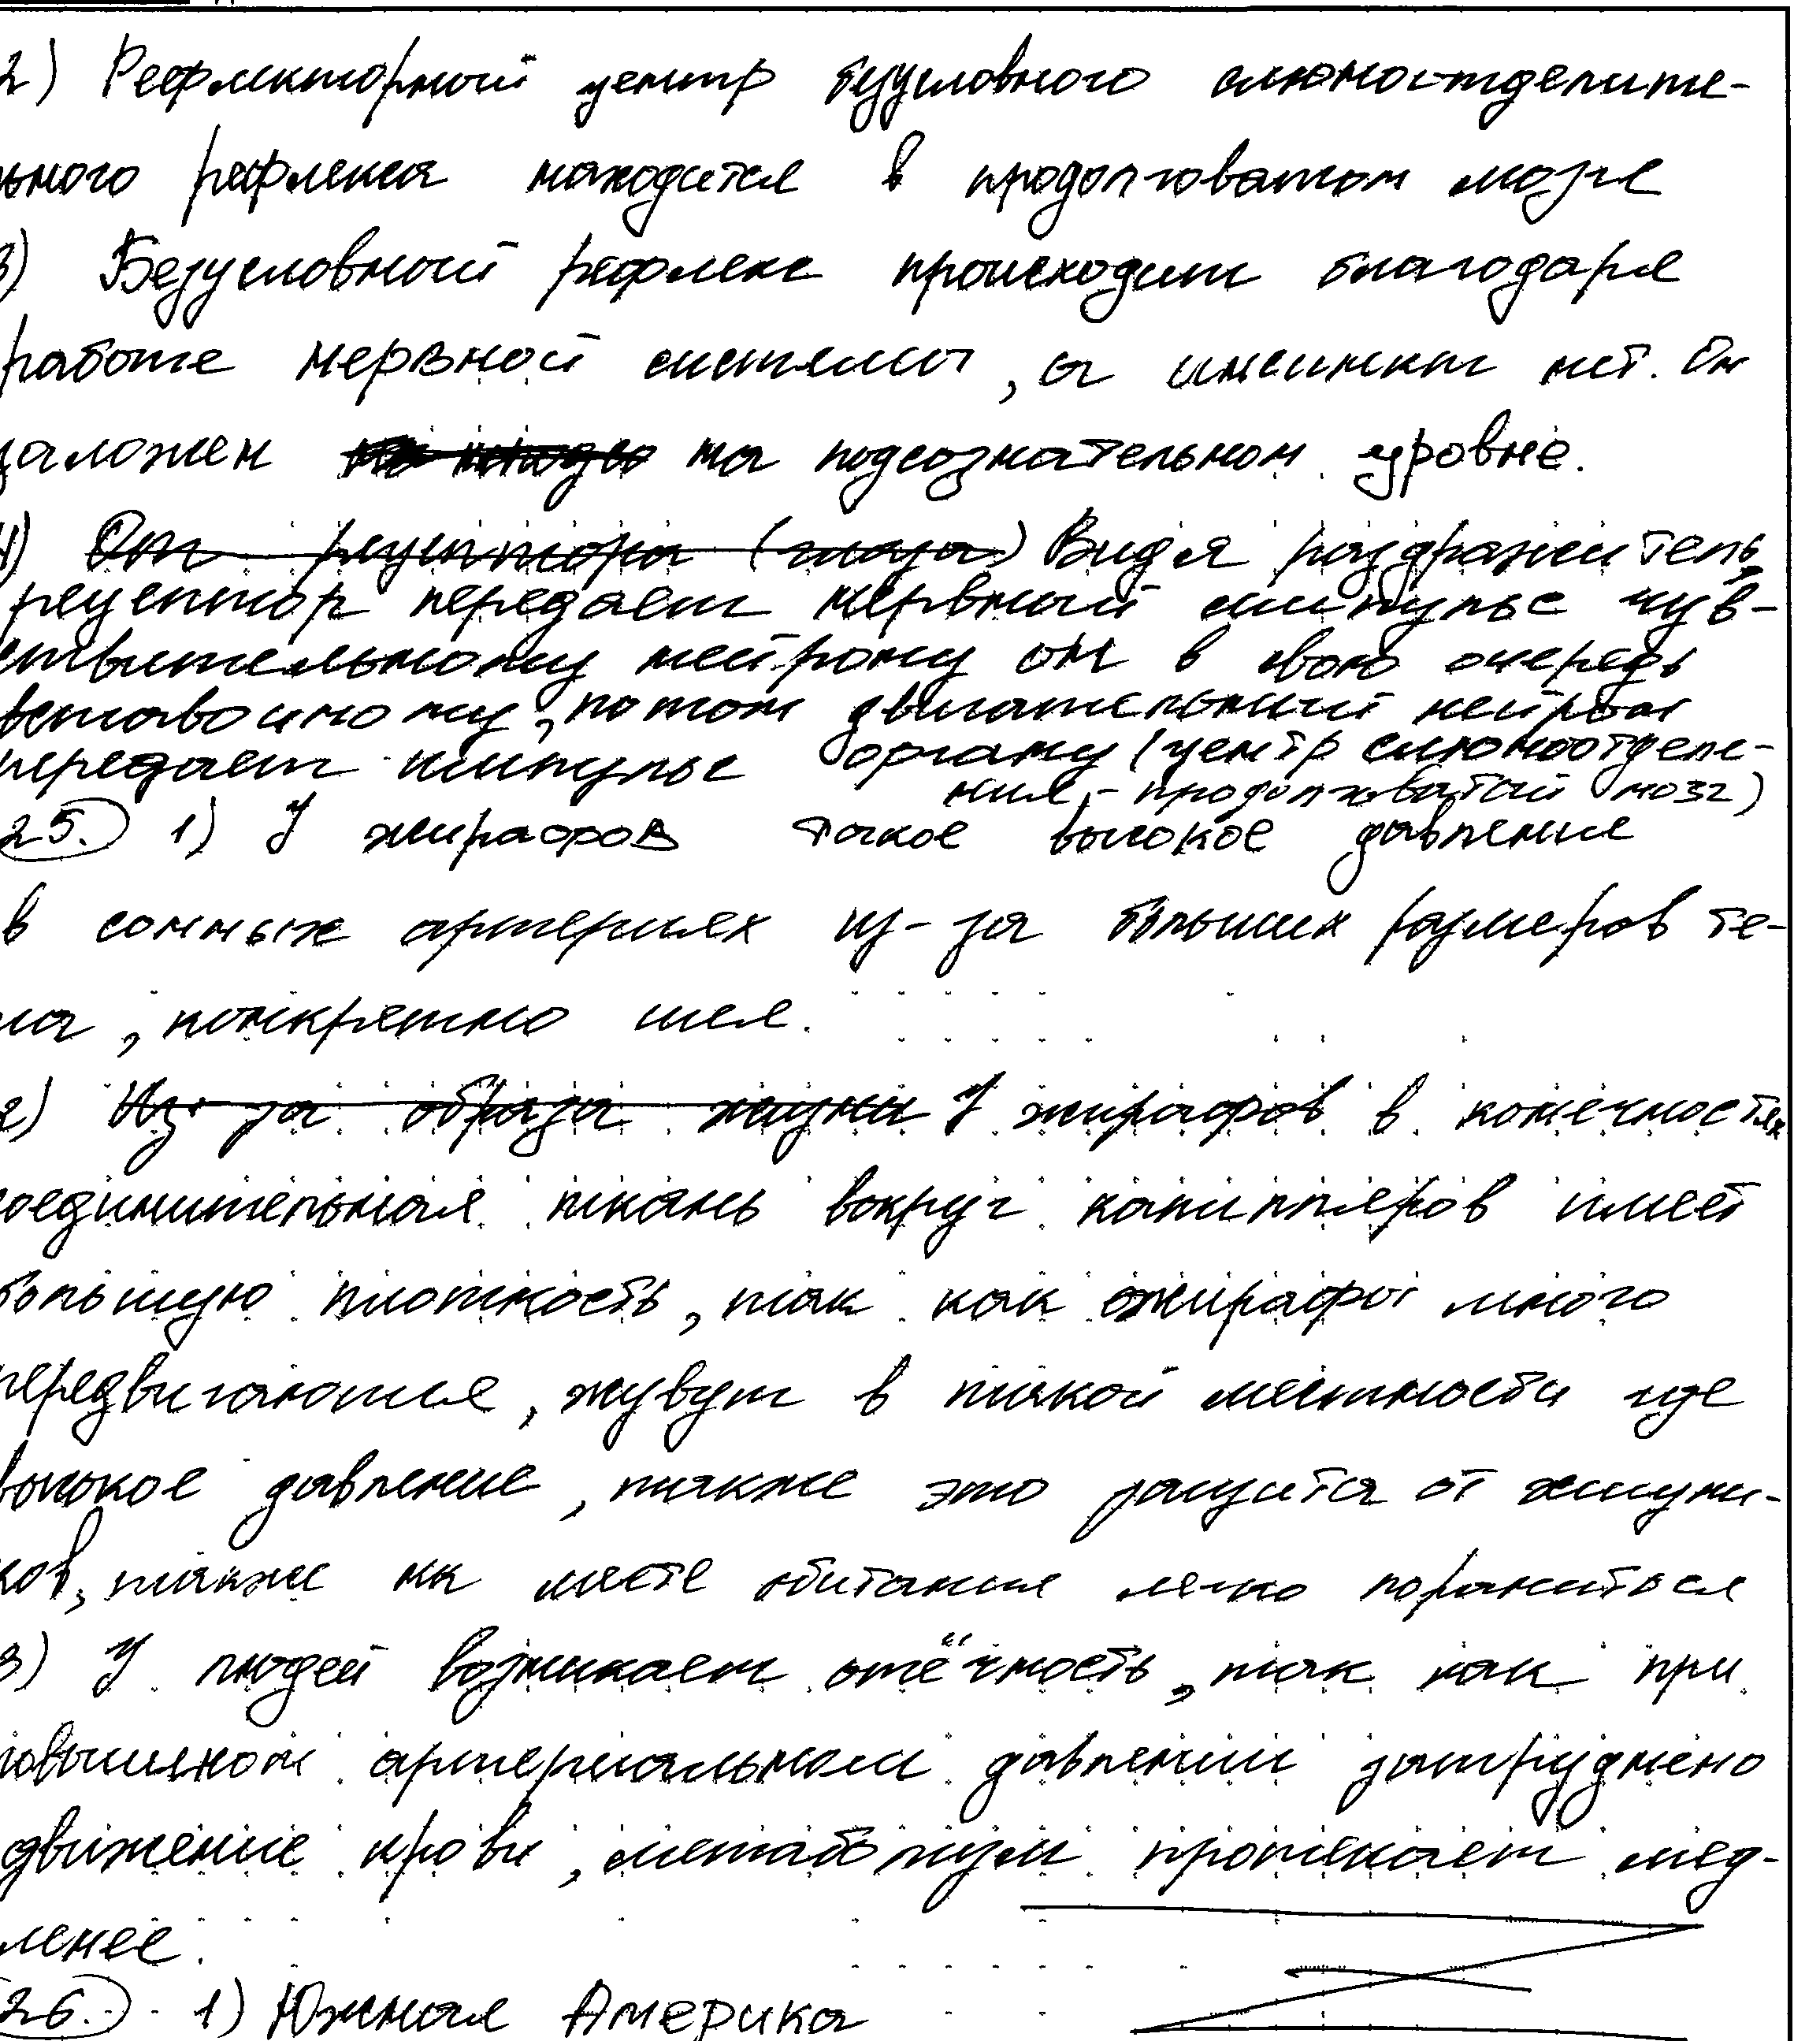 2) Рефлекторный центр безусловного слюноотделите-
льного рефлекса находится в продолговатом мозге
3) Безусловный рефлекс происходит благодаря
работе нервной системы, а инстинкт нет. Он
заложен на подсознательном уровне.
4) От рецептора (глаза) Видя раздражитель,
рецептор передает нервный импульс чув-
ствительному нейрону он в свою очередь
вставочному, потом двигательный нейрон
передает импульс органу (центр слюноотделе-
ния - продолговатый мозг)
25. 1) У жирафов такое высокое давление
в сонных артериях из-за больших размеров те-
ла, конкретно шея.
2) Из-за образа жизни У жирафов в конечностях
соединительная ткань вокруг капилляров имеет
большую плотность, так как жирафы много
передвигаются, живут в такой местности где
высокое давление, также это защита от хищни-
ков, также на месте обитания легко пораниться
3) У людей возникает отёчность, так как при
повышеном артериальном давлении затруднено
движение крови, метаболизм протекает мед-
ленее.
26. 1) Южная Америка